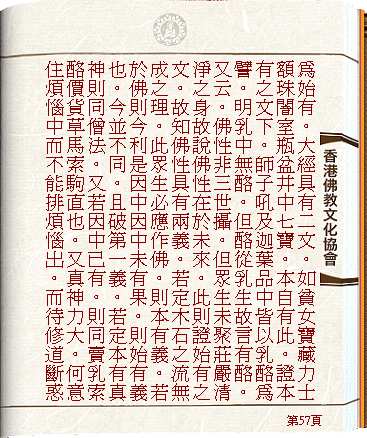 為始有。大經具有二文。如貧女寶藏力士
額珠闇室瓶盆井中七寶。本自有此。證本
有之文下。師子吼及迦葉品中皆以乳酪為
譬。明乳中無酪。但酪從乳生故言有酪。
又云。佛性非三世攝。但眾生未聚莊嚴清
淨之身故說佛性在於未來。此則證始有之
文。故知佛性具有兩義。若定木石之流無
成之理。此眾生必應作佛。則本有義。若
於佛則今利是因中因中未有果。則始有義
也。今並不同。且破第一義。若定本有真
神則同僧法。又若因中已有。則同賣乳索
酪價貨草馬索駒直也。又真神力大。何意
住煩惱中而不能排煩惱出。而待修道斷惑
香港佛教文化協會
第57頁